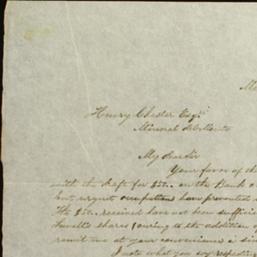 Henry Chester Esqr
My Dear Sir
Your favor of th
with the draft for $50. on the Bank o
but urgent occupations have prevented
The $50. received have not been suffici
shares (owing to the addition of
remit me at your convenience a sim
I note what you say respecting